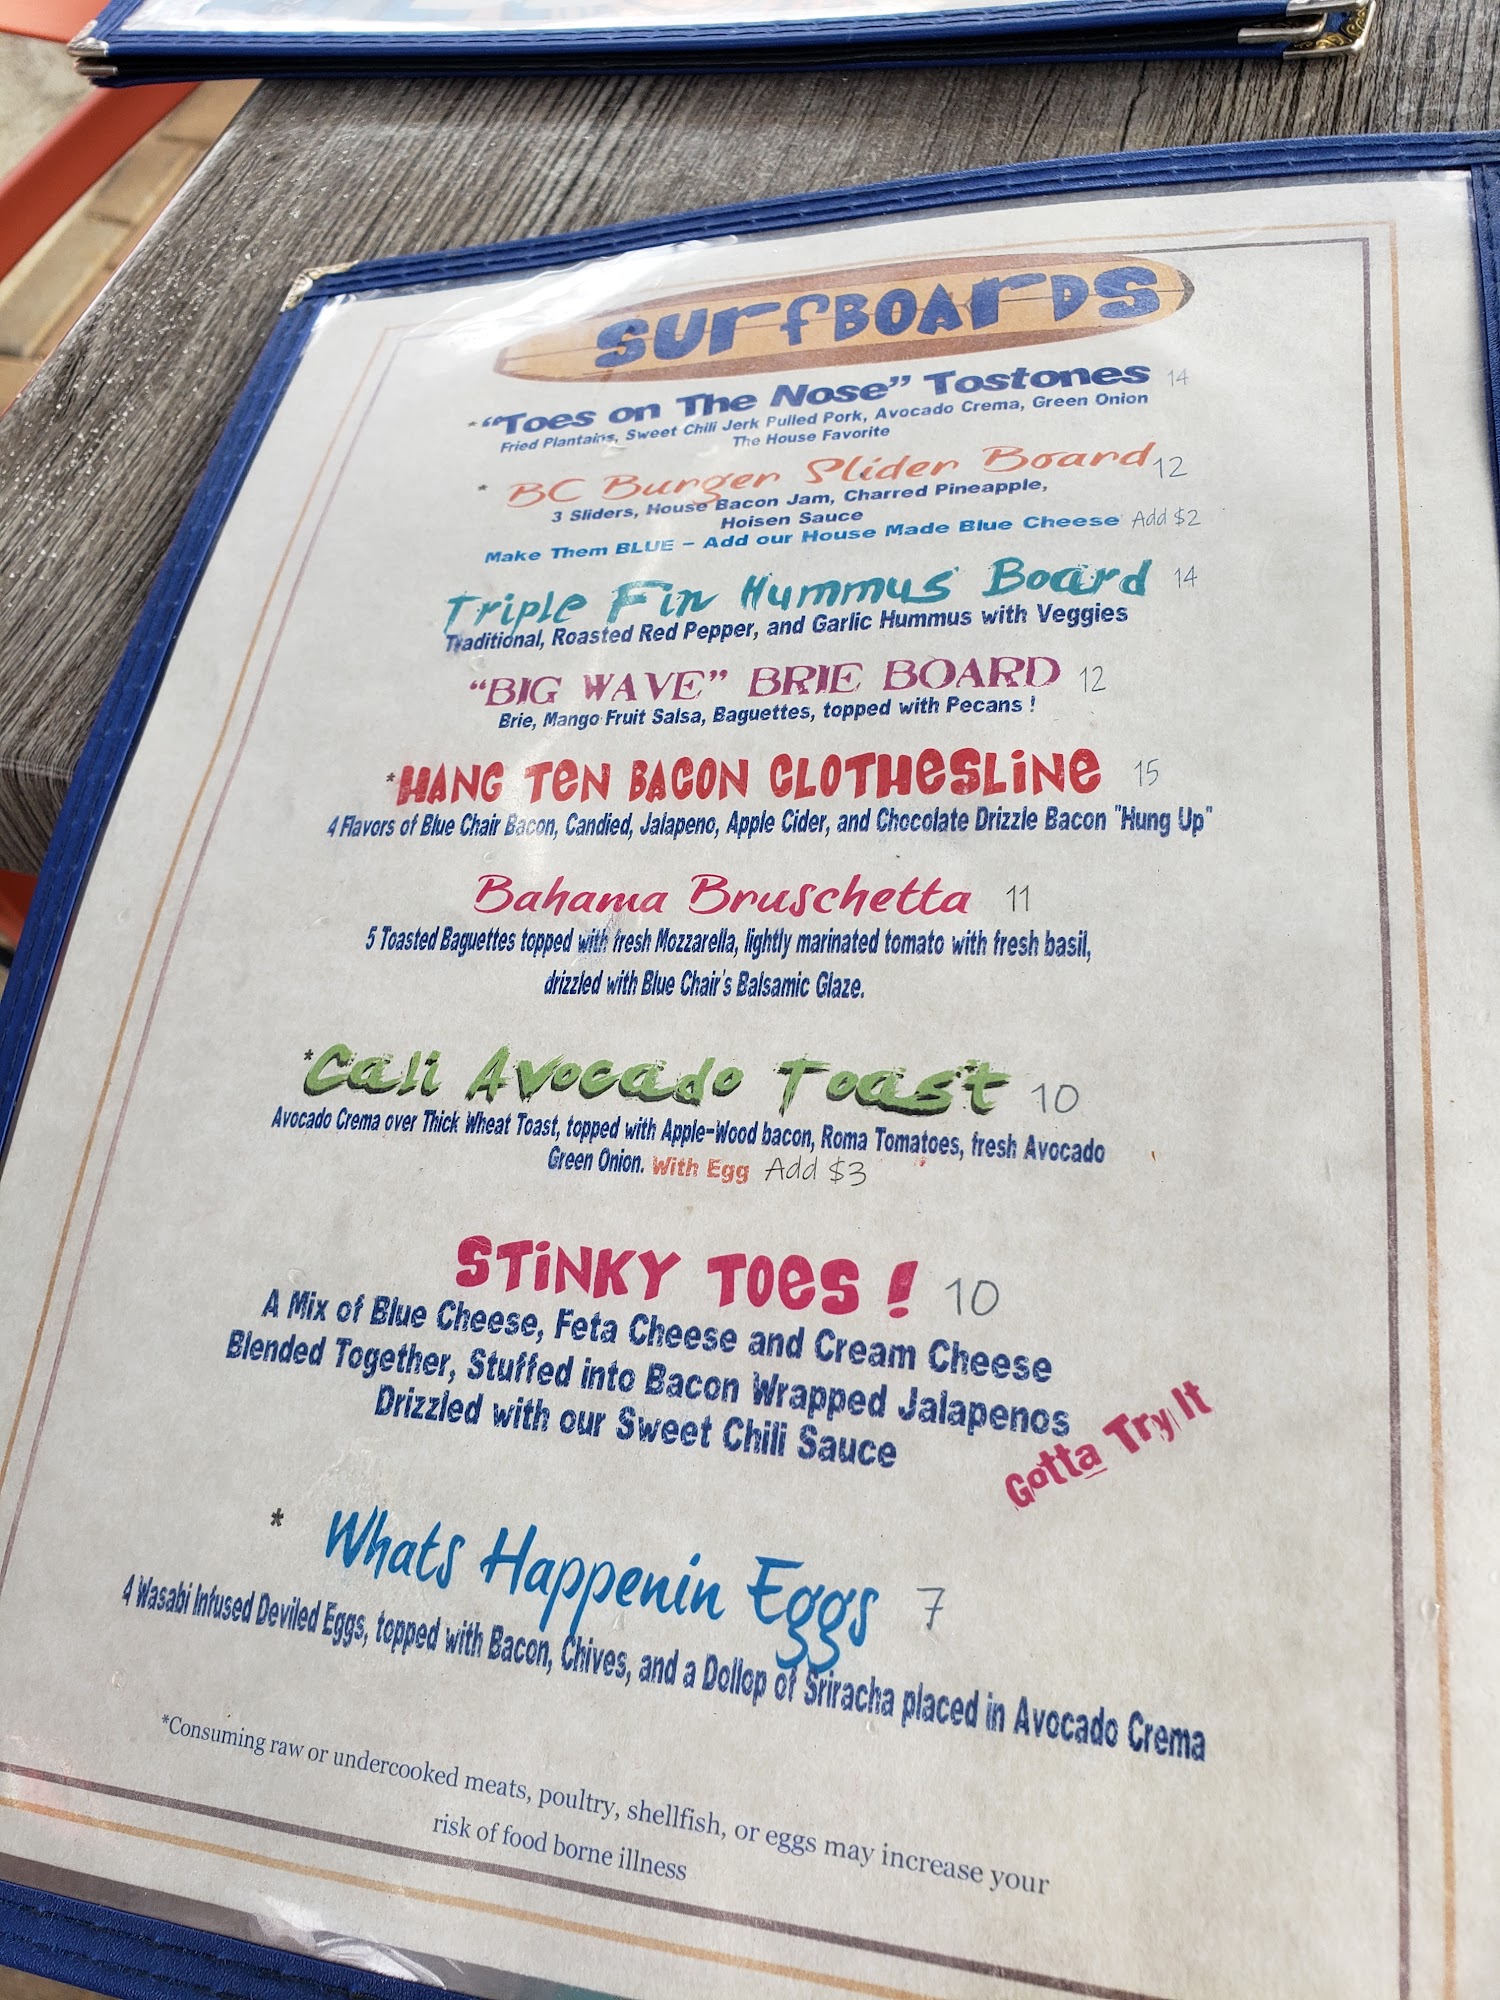 SURFBOARDS
*"Toes on The Nose" Tostones 14
Fried Plantains, Sweet Chili Jerk Pulled Pork, Avocado Crema, Green Onion
The House Favorite
* BC Burger Slider Board 12
3 Sliders, House Bacon Jam, Charred Pineapple,
Hoisen Sauce
Make Them BLUE – Add our House Made Blue Cheese Add $2
Triple Fin Hummus Board 14
Traditional, Roasted Red Pepper, and Garlic Hummus with Veggies
"BIG WAVE" BRIE BOARD 12
Brie, Mango Fruit Salsa, Baguettes, topped with Pecans !
*HANG TEN BACON CLOTHESLINE 15
4 Flavors of Blue Chair Bacon, Candied, Jalapeno, Apple Cider, and Chocolate Drizzle Bacon "Hung Up"
Bahama Bruschetta 11
5 Toasted Baguettes topped with fresh Mozzarella, lightly marinated tomato with fresh basil,
drizzled with Blue Chair's Balsamic Glaze.
*Cali Avocado Toast 10
Avocado Crema over Thick Wheat Toast, topped with Apple-Wood bacon, Roma Tomatoes, fresh Avocado
Green Onion. With Egg Add $3
STINKY TOES ! 10
A Mix of Blue Cheese, Feta Cheese and Cream Cheese
Blended Together, Stuffed into Bacon Wrapped Jalapenos
Drizzled with our Sweet Chili Sauce
Gotta Try It
* Whats Happenin Eggs 7
4 Wasabi Infused Deviled Eggs, topped with Bacon, Chives, and a Dollop of Sriracha placed in Avocado Crema
*Consuming raw or undercooked meats, poultry, shellfish, or eggs may increase your
risk of food borne illness